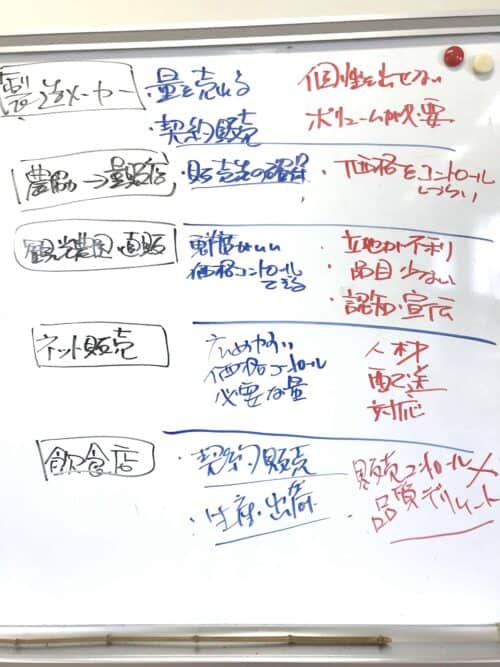 製造メーカー
・量を売れる
・契約販売
個性を出せない
ボリューム必要
農協→量販店
・販売先の確保
・価格をコントロール
しづらい
観光農園・直販
単価がいい
価格コントロール
できる
・立地が不利
・品目少ない
・認知・宣伝
ネット販売
広めやすい
価格コントロール
必要な量
人材
配送
対応
飲食店
・契約販売
・生産・出荷
販売コントロール×
・品質デリケート